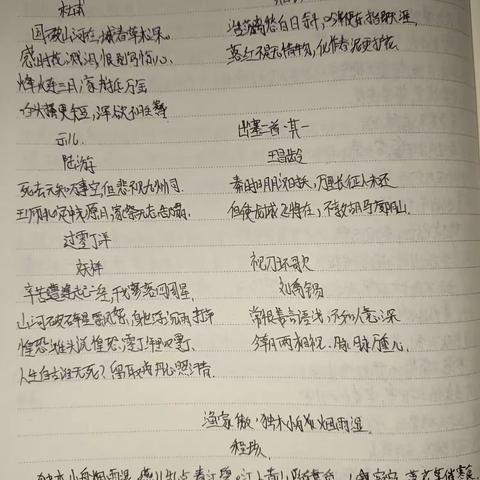 杜甫
国破山河在,城春草木深。
感时花溅泪,恨别鸟惊心。
烽火连三月,家书抵万金
白头搔更短,浑欲不胜簪
示儿
陆游
死去元知万事空,但悲不见九州同
王师北定中原日,家祭无忘告乃翁。
过零丁洋
文天祥
辛苦遭逢起一经,干戈寥落四周星
山河破碎风飘絮,身世浮沉雨打萍
惶恐滩头说惶恐,零丁洋里叹零丁
人生自古谁无死?留取丹心照汗青
浩荡离愁白日斜,吟鞭东指即天涯
落红不是无情物,化作春泥更护花
出塞二首·其一
王昌龄
秦时明月汉时关,万里长征人未还
但使龙城飞将在,不教胡马度阴山
刘禹锡
常恨言语浅,不如人意深
今朝两相视,脉脉万重心
渔家傲·独木小舟烟雨湿
独木小舟烟雨湿